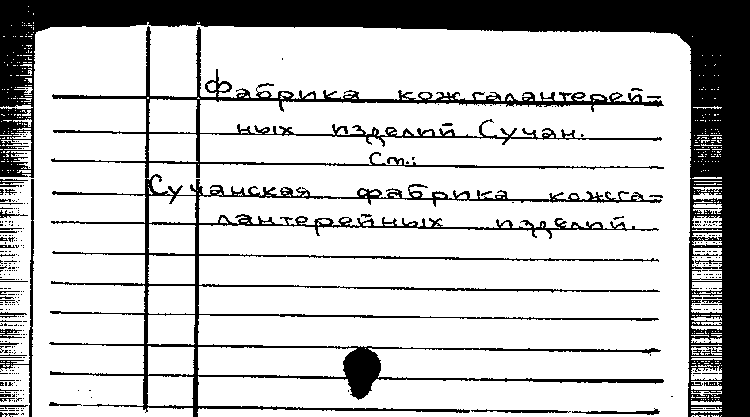 Фабрика кожгалантерей=
ных изделий. Сучан.
См.:
Сучанская фабрика кожга=
лантерейных изделий.